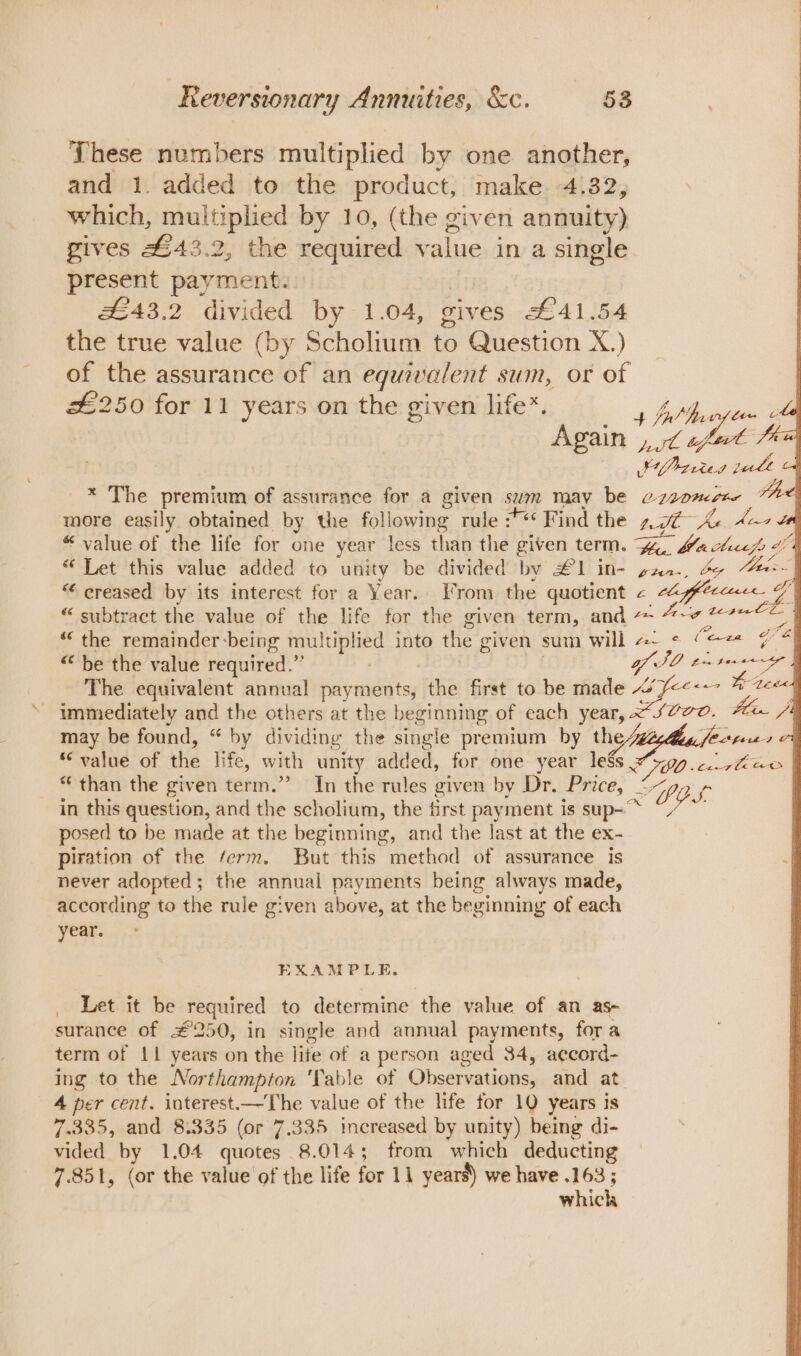 Reversionary Annuities, &c. 53
These numbers multiplied by one another,
and 1. added to the product, make 4.32,
which, multiplied by 10, (the given annuity)
gives £43.2, the required value in a single
present payment.
£43.2 divided by 1.04, gives £41.54
the true value (by Scholium to Question X.)
of the assurance of an equivalent sum, or of
£250 for 11 years on the given life*.
Again
* The premium of assurance for a given sum may be
more easily obtained by the following rule :+“ Find the
“ value of the life for one year less than the given term.
“ Let this value added to unity be divided by £1 in-
“ creased by its interest for a Year. From the quotient
“ subtract the value of the life for the given term, and
“ the remainder being multiplied into the given sum will
“ be the value required.”
The equivalent annual payments, the first to be made
immediately and the others at the beginning of each year,
may be found, “ by dividing the single premium by the
“ value of the life, with unity added, for one year less
“ than the given term.” In the rules given by Dr. Price,
in this question, and the scholium, the first payment is sup-
posed to be made at the beginning, and the last at the ex-
piration of the term. But this method of assurance is
never adopted; the annual payments being always made,
according to the rule given above, at the beginning of each
year.
EXAMPLE.
Let it be required to determine the value of an as-
surance of £250, in single and annual payments, for a
term of 11 years on the life of a person aged 34, accord-
ing to the Northampton Table of Observations, and at
4 per cent. interest.—The value of the life for 10 years is
7.335, and 8.335 (or 7.335 increased by unity) being di-
vided by 1.04 quotes 8.014; from which deducting
7.851, (or the value of the life for 11 years) we have .163;
which